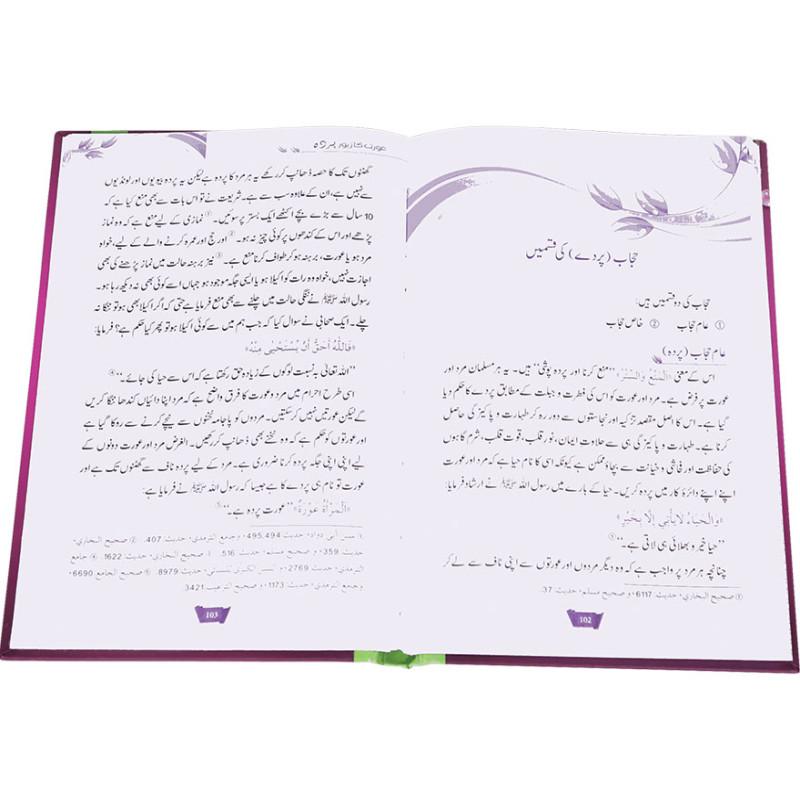 حجاب (پردے) کی قسمیں
حجاب کی دو قسمیں ہیں:
① عام حجاب ② خاص حجاب
عام حجاب (پردہ)
اس کے معنی «اَلْمَنْعُ وَالسَّتْرُ» ’’منع کرنا اور پردہ پوشی‘‘ ہیں۔ یہ ہر مسلمان مرد اور
عورت پر فرض ہے۔ مرد اور عورت کو اس کی فطرت و جبلت کے مطابق پردے کا حکم دیا
گیا ہے۔ اس کا اصل مقصد تزکیہ اور نجاستوں سے دور رہ کر طہارت و پاکیزگی حاصل
کرنا ہے۔ طہارت و پاکیزگی ہی سے حلاوت ایمان، نور قلب، قوت قلب، شرم گاہوں
کی حفاظت اور فحاشی و خیانت سے بچاؤ ممکن ہے کیونکہ اسی کا نام حیا ہے کہ مرد اور عورت
اپنے اپنے دائرۂ کار میں پردہ کریں۔ حیا کے بارے میں رسول اللہ ﷺ نے ارشاد فرمایا:
«وَالْحَيَاءُ لَا يَأْتِي إِلَّا بِخَيْرٍ»
’’حیا خیر و بھلائی ہی لاتی ہے۔‘‘①
چنانچہ ہر مرد پر واجب ہے کہ وہ دیگر مردوں اور عورتوں سے اپنی ناف سے لے کر
① صحيح البخاري، حديث: 6117، و صحيح مسلم، حديث: 37.
102
عورت کا زیور پردہ
گھٹنوں تک کا حصہ ڈھانپ کر رکھے یہ ہر مرد کا پردہ ہے لیکن یہ پردہ بیویوں اور لونڈیوں
سے نہیں ہے، ان کے علاوہ سب سے ہے۔ شریعت نے تو اس بات سے بھی منع کیا ہے کہ
10 سال سے بڑے بچے اکٹھے ایک بستر پر سوئیں۔① نمازی کے لیے منع ہے کہ وہ نماز
پڑھے اور اس کے کندھوں پر کوئی چیز نہ ہو۔② اور حج اور عمرہ کرنے والے کے لیے، خواہ
مرد ہو یا عورت، برہنہ ہو کر طواف کرنا منع ہے۔③ نیز برہنہ حالت میں نماز پڑھنے کی بھی
اجازت نہیں، خواہ وہ رات کو اکیلا ہو یا ایسی جگہ موجود ہو جہاں اسے کوئی بھی نہ دیکھ رہا ہو۔
رسول اللہ ﷺ نے ننگی حالت میں چلنے سے بھی منع فرمایا ہے حتی کہ اگر اکیلا بھی ہو تو ننگا نہ
چلے۔ ایک صحابی نے سوال کیا کہ جب ہم میں سے کوئی اکیلا ہو تو پھر کیا حکم ہے؟ فرمایا:
«فَاللّٰهُ أَحَقُّ أَنْ يُسْتَحْيٰى مِنْهُ»
’’اللہ تعالیٰ بہ نسبت لوگوں کے زیادہ حق رکھتا ہے کہ اس سے حیا کی جائے۔‘‘④
اسی طرح احرام میں مرد و عورت کا فرق واضح ہے کہ مرد اپنا دایاں کندھا ننگا کریں
گے لیکن عورتیں نہیں کر سکتیں۔ مردوں کو پاجامہ ٹخنوں سے نیچے کرنے سے روکا گیا ہے
اور عورتوں کو حکم ہے کہ وہ ٹخنے بھی ڈھانپ کر رکھیں۔ الغرض مرد اور عورت دونوں کے
لیے اپنی اپنی جگہ پردہ کرنا ضروری ہے۔ مرد کے لیے پردہ ناف سے گھٹنوں تک ہے اور
عورت تو نام ہی پردے کا ہے جیسا کہ رسول اللہ ﷺ نے فرمایا ہے:
«اَلْمَرْأَةُ عَوْرَةٌ» ’’عورت پردہ ہے۔‘‘⑤
① سنن أبي داود، حديث: 495,494، و جامع الترمذي، حديث: 407. ② صحيح البخاري،
حديث: 359، و صحيح مسلم، حديث: 516. ③ صحيح البخاري، حديث: 1622. ④ جامع
الترمذي، حديث: 2769، و السنن الكبرى للنسائي، حديث: 8979. ⑤ صحيح الجامع: 6690
وجامع الترمذي، حديث: 1173، و صحيح الترغيب: 3421
103